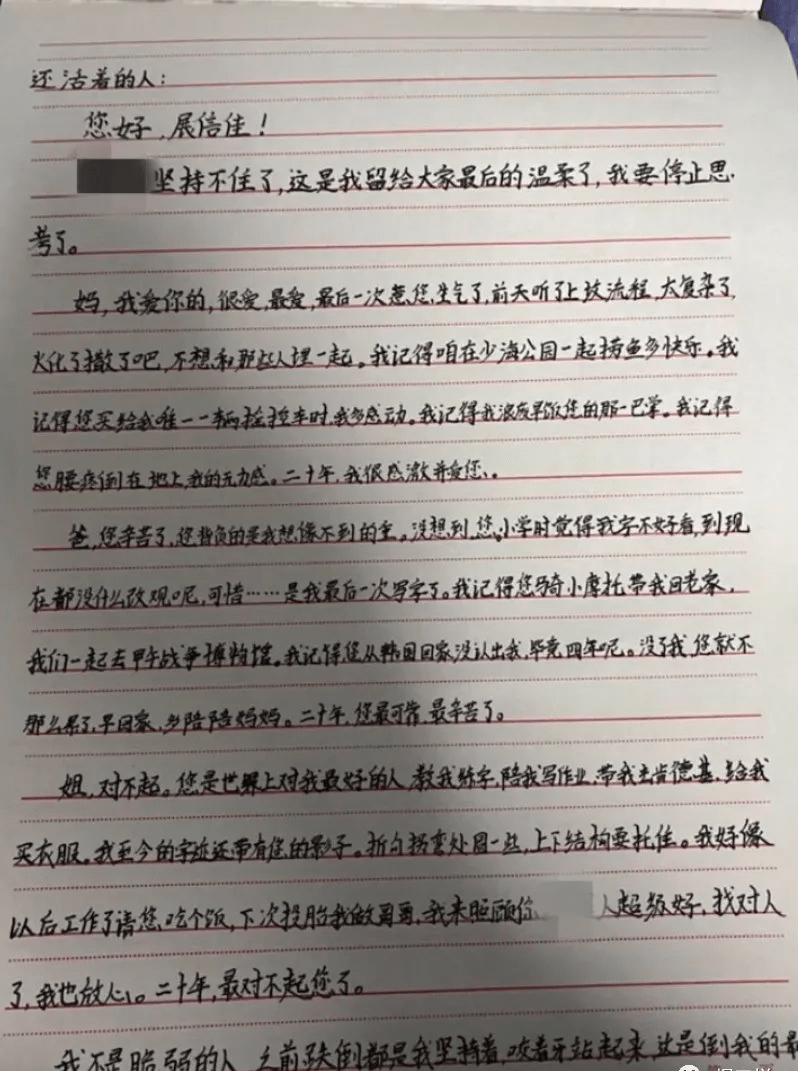 还活着的人：
您好，展信佳！
坚持不住了，这是我留给大家最后的温柔了，我要停止思
考了。
妈，我爱你的，很爱，最爱，最后一次惹您生气了，前天听了上坟流程，太复杂了，
火化了撒了吧，不想和那些人埋一起。我记得咱在少海公园一起捞鱼多快乐。我
记得您买给我唯一一辆摇控车时，我多感动。我记得我浪费早饭您的那一巴掌。我记得
您腰疼倒在地上，我的无力感。二十年，我很感激并爱您、。
爸，您辛苦了，您背负的是我想像不到的重。没想到，您小学时觉得我字不好看，到现
在都没什么改观呢，可惜……是我最后一次写字了。我记得您骑小摩托带我回老家，
我们一起去甲午战争博物馆。我记得您从韩国回家没认出我，毕竟四年呢。没了我，您就不
那么累了，早回家，多陪陪妈妈。二十年，您最可靠，最辛苦了。
姐，对不起。您是世界上对我最好的人，教我练字，陪我写作业，带我去肯德基，给我
买衣服。我至今的字迹还带有您的影子。折勾拐弯处圆一些，上下结构要托住。我好像
以后工作了请您吃个饭，下次投胎我做哥哥，我来照顾你 人超级好，找对人
了，我也放心、。二十年，最对不起您了。
我不是脆弱的人，之前跌倒都是我坚持着，咬着牙站起来，这是倒我的最